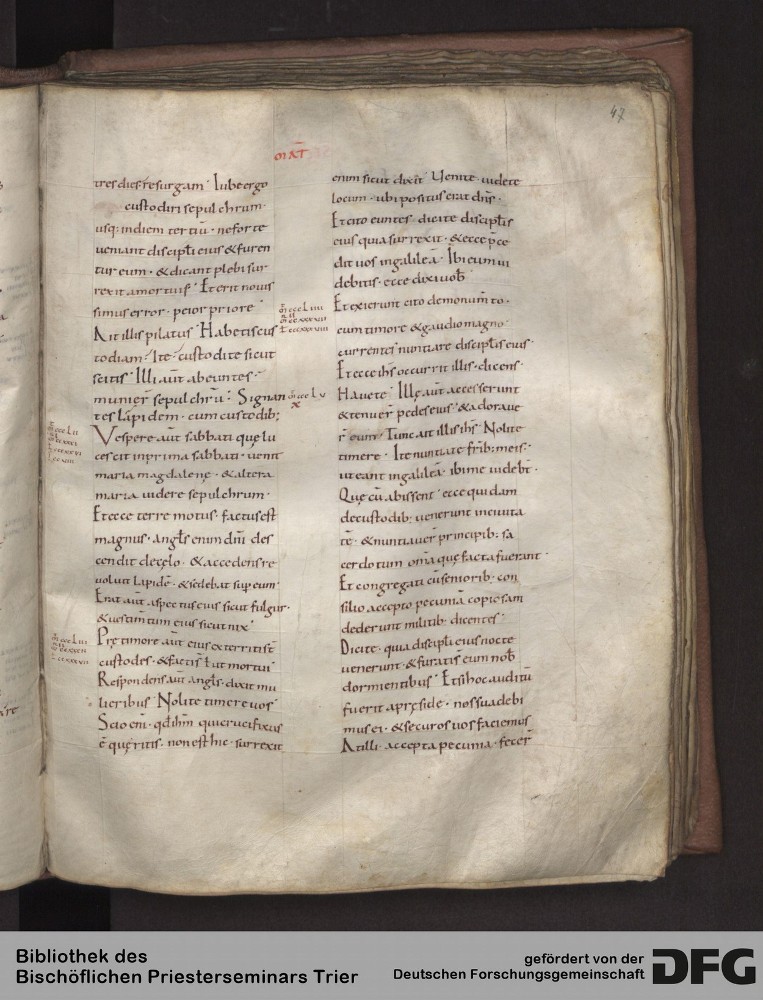 47
MAT
tres dies resurgam. Iube ergo
custodiri sepulchrum.
usq; in diem tertiū. ne forte
ueniant discipłi eius & furen
tur eum. & dicant plebi sur
rexit a mortuis. Et erit nouis
simus error. peior priore.
Ait illis pilatus. Habetis cus
todiam. Ite. custodite sicut
scitis. Illi aūt abeuntes.
munier̄ sepulchrū. Signan
tes lapidem. cum custodib;
Vespere aūt sabbati quę lu
cescit in prima sabbati. uenit
maria magdalene. & altera
maria uidere sepulchrum.
Et ecce terre motus. factus est
magnus. angłs enim dnī des
cendit de cęlo. & accedens re
uoluit lapidē. & sedebat sup eum.
Erat aūt aspectus eius sicut fulgur.
& uestimtum eius sicut nix.
Prę timore aūt eius exterriti st̄
custodes. & facti st̄ uł ut mortui
Respondens aut angłs. dixit mu
lieribus. Nolite timere uos.
Scio eni. qđ ihm qui crucifixus
ē quęritis. non est hic. surrexit
enim sicut dixit. Uenite. uidete
locum. ubi positus erat dn̄s.
Et cito euntes. dicite discipłis
eius quia surrexit. & ecce p̄ce
dit uos in galileā. Ibi eum ui
debitis. ecce dixi uob̄
Et exierunt cito de monumto.
cum timore & gaudio magno
currentes nuntiare discipłis eius
Et ecce ihs occurrit illis. dicens.
Hauete. Illę aūt accesserunt
& tenuer̄ pedes eius. & adoraue
r̄ eum. Tunc ait illis ihs. Nolite
timere. Ite nuntiate frib; meis.
ut eant in galileā. ibi me uidebt̄.
Quę cū abissent. ecce quidam
de custodib; uenerunt in ciuita
tē. & nuntiauer̄ principib; sa
cerdotum om̄a quę facta fuerant.
Et congregati cū seniorib; con
silio accepto pecuniā copiosam
dederunt militib; dicentes.
Dicite. quia discipłi eius nocte
uenerunt. & furati st̄ eum nob̄
dormientibus. Et si hoc auditū
fuerit a pręside. nos suadebi
mus ei. & securos uos faciemus
At illi. accepta pecunia. fecer̄
Bibliothek des
Bischöflichen Priesterseminars Trier
gefördert von der
Deutschen Forschungsgemeinschaft
DFG